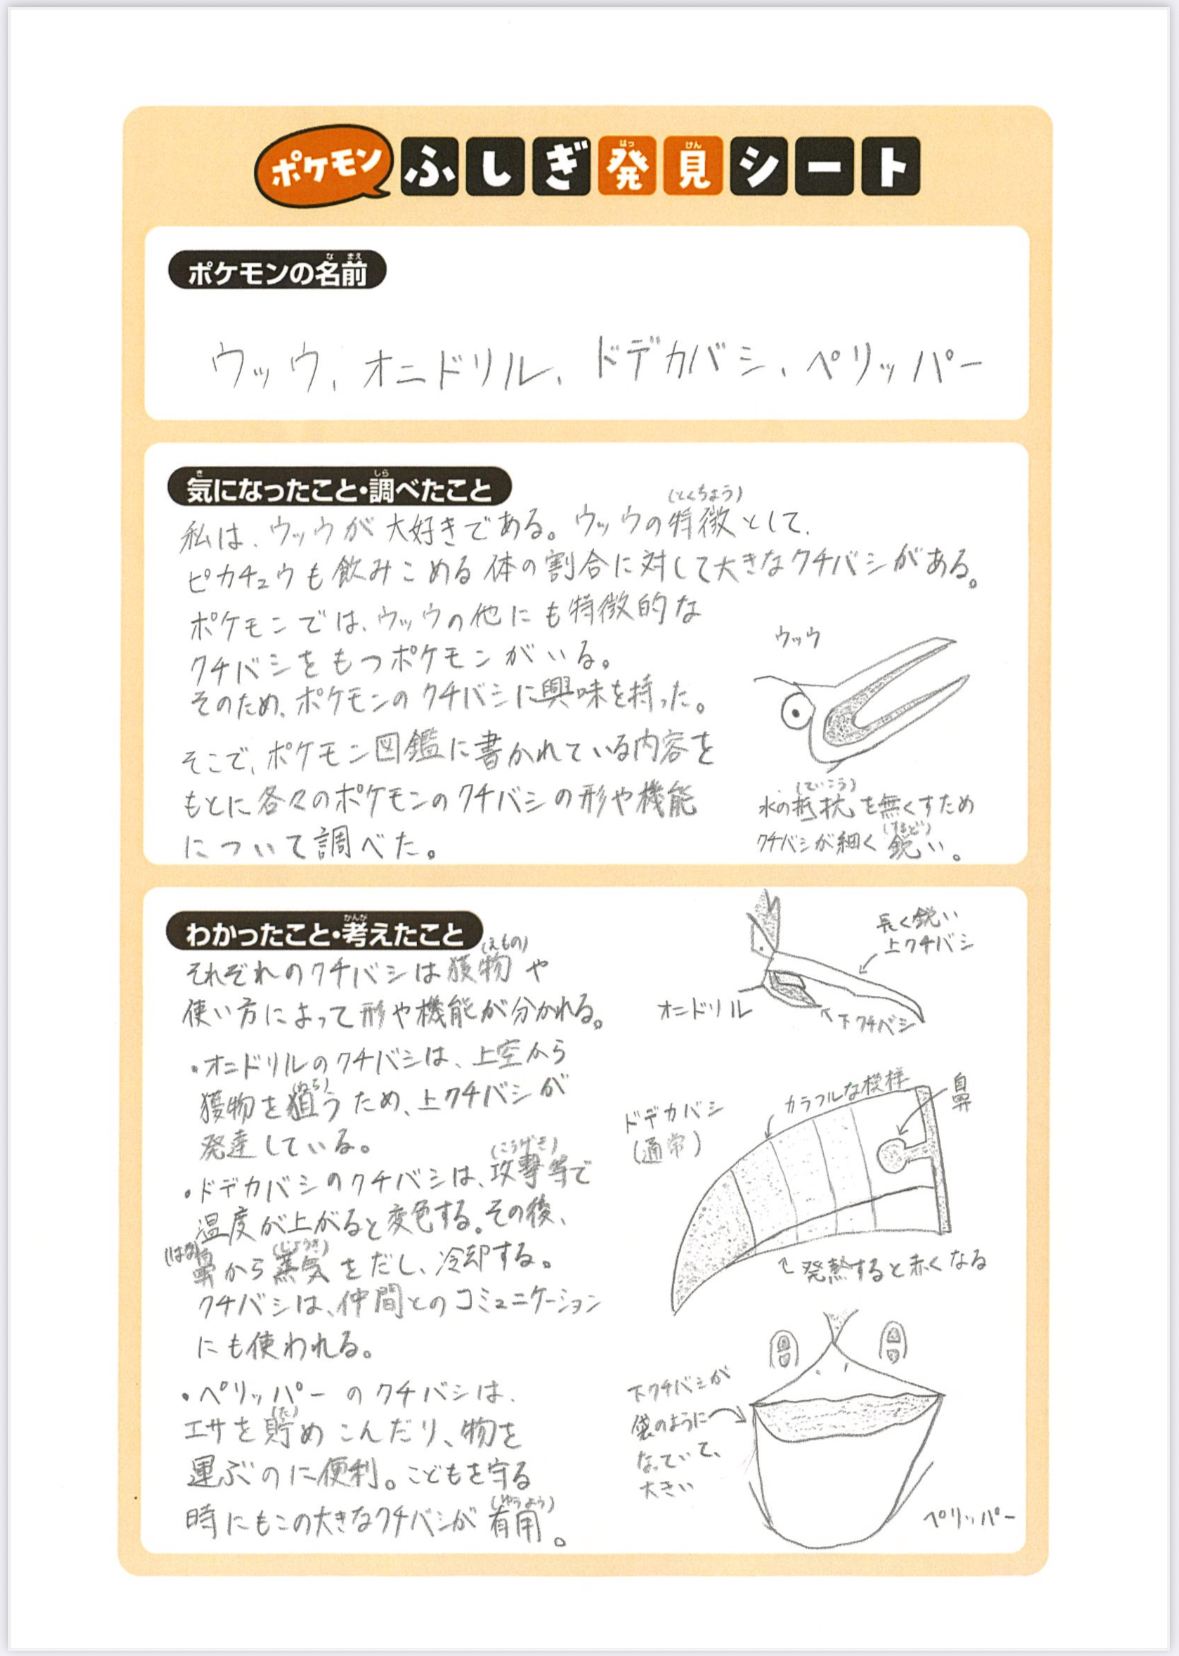 ポケモン ふしぎ発見シート
ポケモンの名前
ウッウ、オニドリル、ドデカバシ、ペリッパー
気になったこと・調べたこと
私は、ウッウが大好きである。ウッウの特徴(とくちょう)として、
ピカチュウも飲みこめる体の割合に対して大きなクチバシがある。
ポケモンでは、ウッウの他にも特徴的な
クチバシをもつポケモンがいる。
そのため、ポケモンのクチバシに興味を持った。
そこで、ポケモン図鑑に書かれている内容を
もとに各々のポケモンのクチバシの形や機能
について調べた。
ウッウ
水の抵抗(ていこう)を無くすため
クチバシが細く鋭(するど)い。
わかったこと・考えたこと
それぞれのクチバシは獲物(えもの)や
使い方によって形や機能が分かれる。
・オニドリルのクチバシは、上空から
獲物を狙(ねら)うため、上クチバシが
発達している。
・ドデカバシのクチバシは、攻撃(こうげき)等で
温度が上がると変色する。その後、
鼻(はな)から蒸気(じょうき)をだし、冷却する。
クチバシは、仲間とのコミュニケーション
にも使われる。
・ペリッパーのクチバシは、
エサを貯(た)めこんだり、物を
運ぶのに便利。こどもを守る
時にもこの大きなクチバシが有用(ゆうよう)。
長く鋭い
上クチバシ
オニドリル
下クチバシ
ドデカバシ
(通常)
カラフルな模様
鼻
発熱すると赤くなる
下クチバシが
袋のように
なっていて、
大きい
ペリッパー